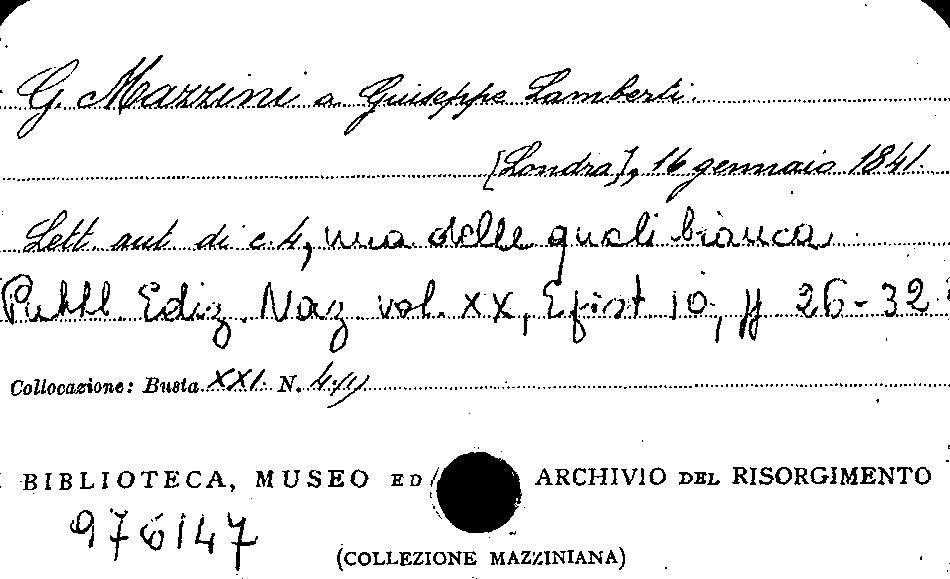 G. Mazzini a Giuseppe Lamberti.
[Londra], 16 gennaio 1841.
Lett. aut. di c. 4, una delle quali bianca
Pubbl. Ediz. Naz. vol. XX, Epist. 10, pp 26-32
Collocazione: Busta XXI N.
BIBLIOTECA, MUSEO ED ARCHIVIO DEL RISORGIMENTO
976147
(COLLEZIONE MAZZINIANA)